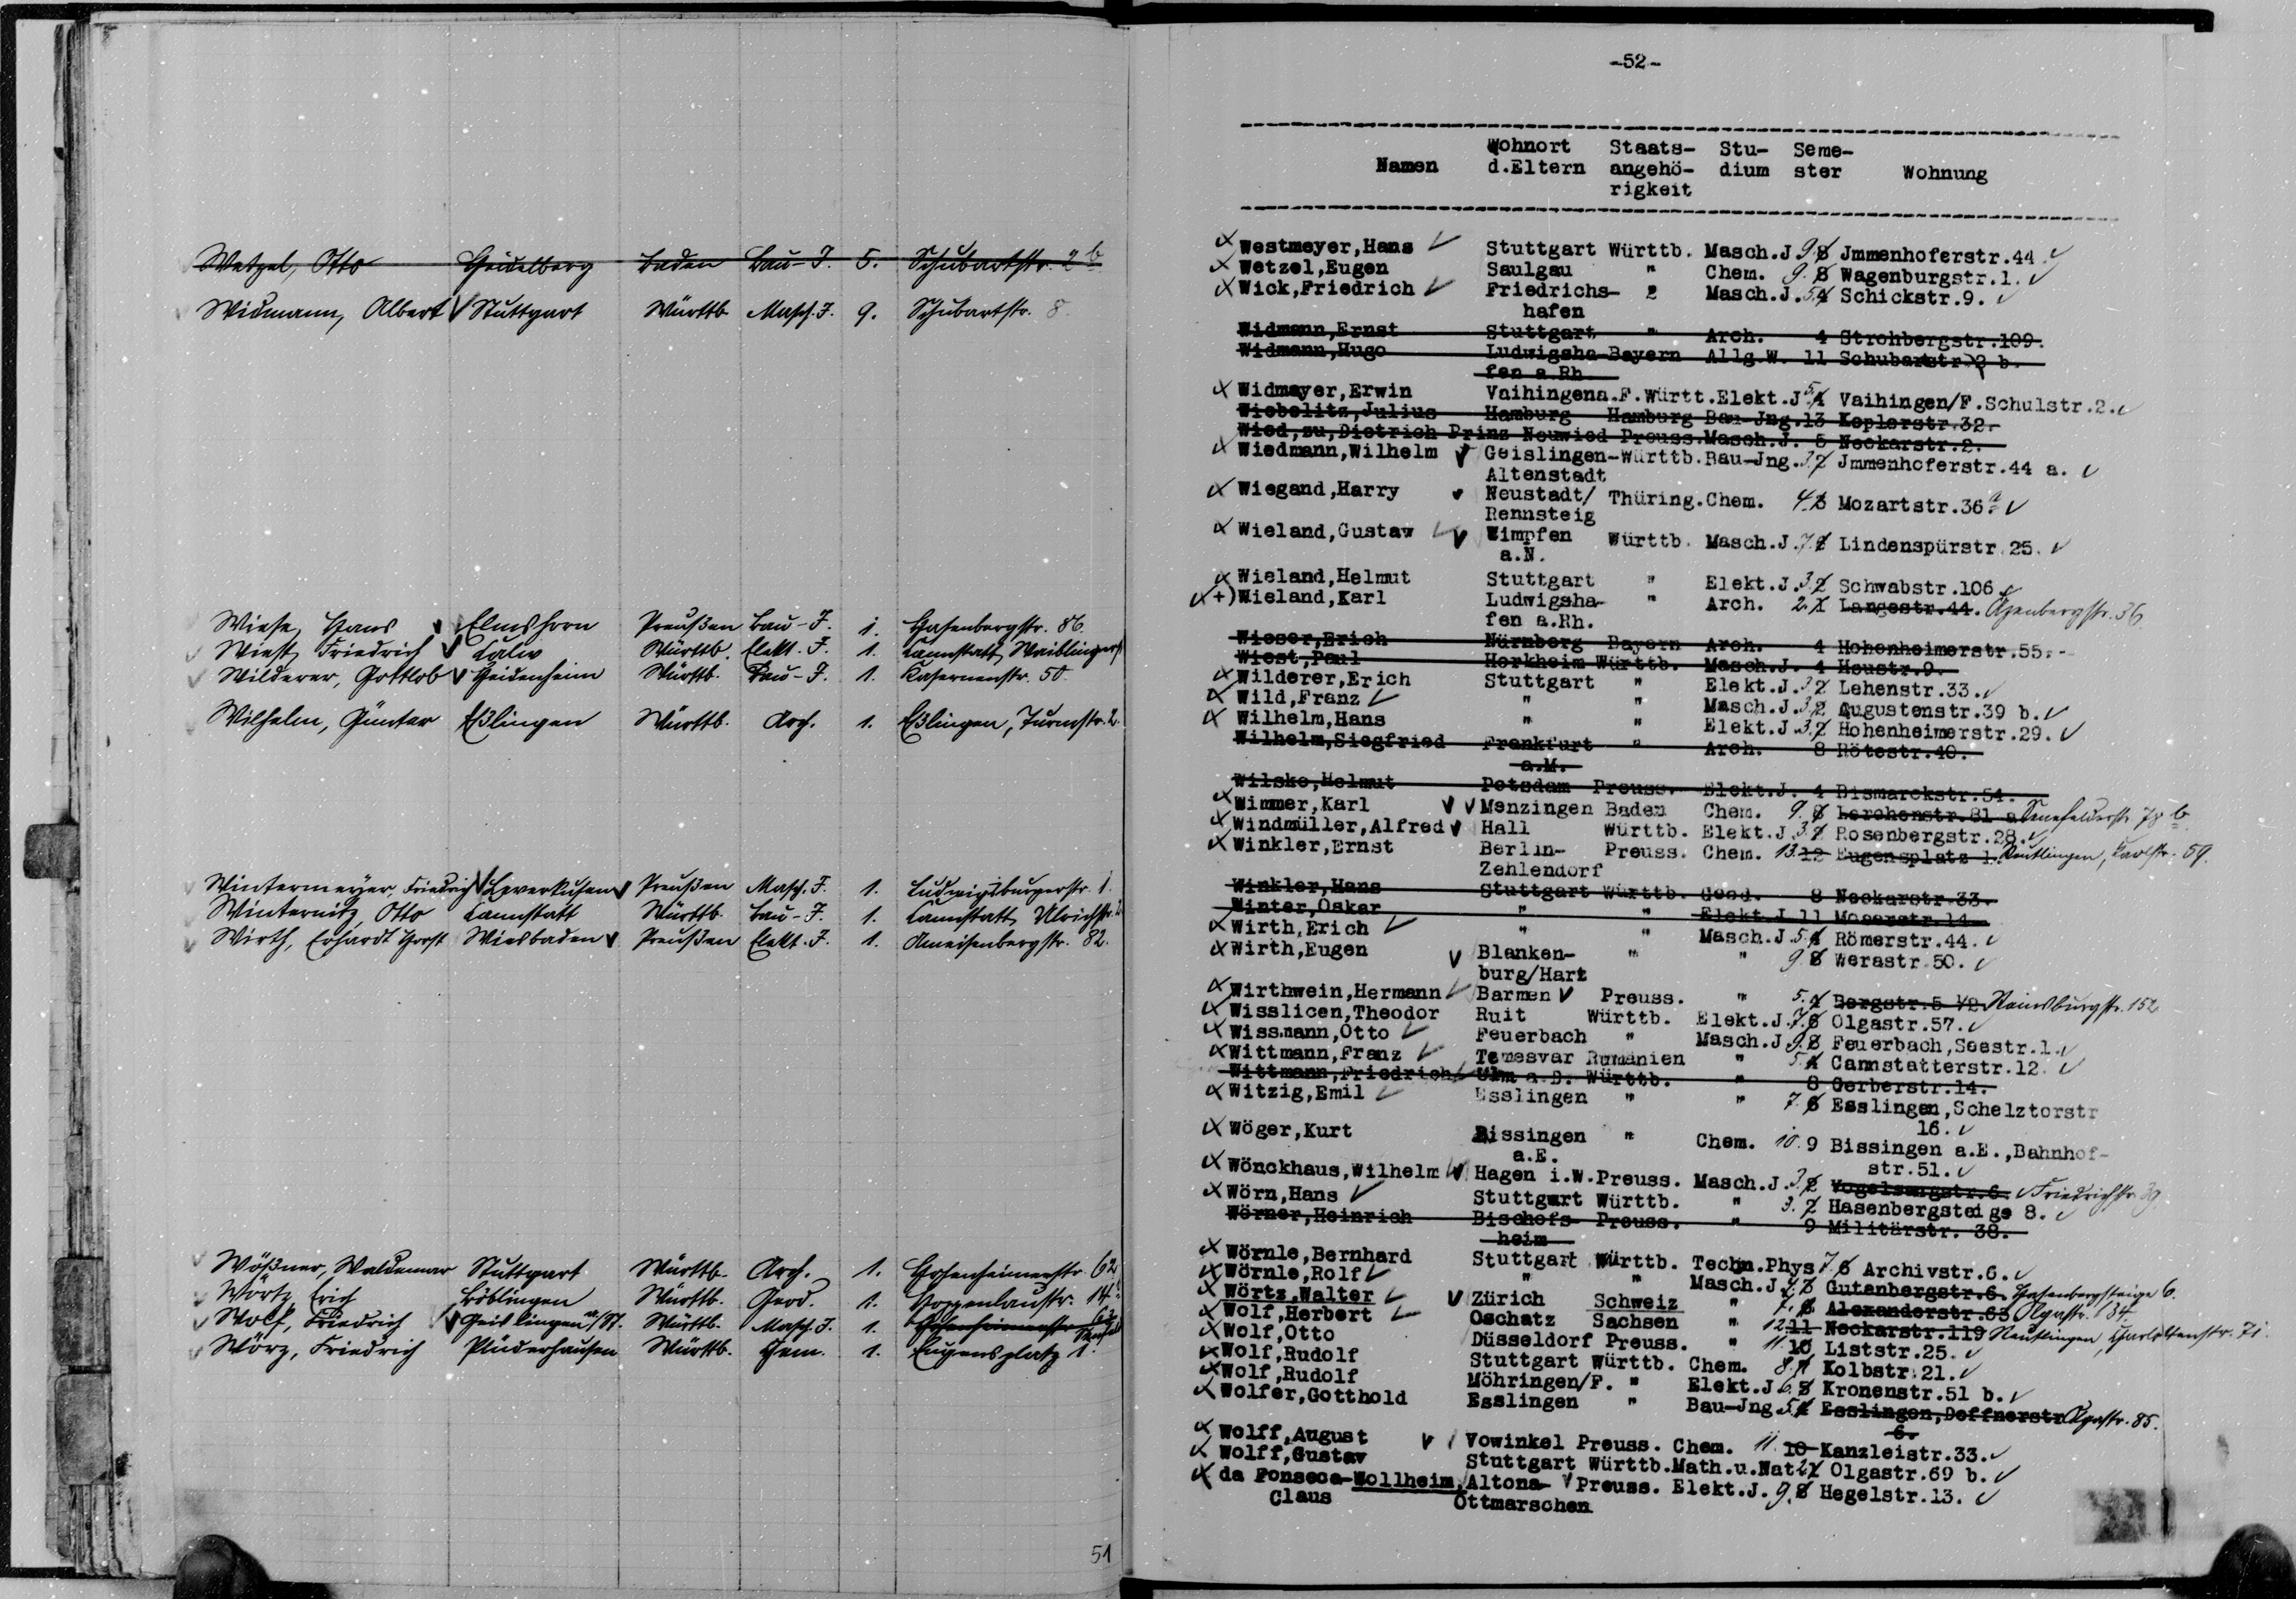 Wetzel, Otto Heidelberg Baden Bau-I. 5. Schubartstr. 2 b
Widmann, Albert Stuttgart Württb. Masch.I. 9. Schubartstr. 8.
Wiese, Hans Elmshorn Preußen Bau-I. 1. Hasenbergstr. 86.
Wiest, Friedrich Calw Württb. Elekt.I. 1. Cannstatt, Waiblingerstr.
Wilderer, Gottlob Heidenheim Württb. Bau-I. 1. Kasernenstr. 50.
Wilhelm, Günter Eßlingen Württb. Arch. 1. Eßlingen, Turmstr. 2.
Wintermeyer, Friedrich Leverkusen Preußen Masch.I. 1. Ludwigsburgerstr. 1.
Winternitz, Otto Cannstatt Württb. Bau-I. 1. Cannstatt, Ulrichstr. 2
Wirth, Erhardt Horst Wiesbaden Preußen Elekt.I. 1. Ameisenbergstr. 82.
Wößner, Waldemar Stuttgart Württb. Arch. 1. Hohenheimerstr. 62
Wörtz, Erich Böblingen Württb. Geod. 1. Hoppenlaustr. 14
Wolf, Friedrich Geislingen a/St. Württb. Masch.I. 1. Hohenheimerstr. 62
Wörz, Friedrich Plüderhausen Württb. Chem. 1. Eugensplatz 1.
51
-52-
Namen Wohnort d.Eltern Staats-angehö-rigkeit Stu-dium Seme-ster Wohnung
Westmeyer,Hans Stuttgart Württb. Masch.J 9. 8 Jmmenhoferstr.44
Wetzel,Eugen Saulgau " Chem. 9. 8 Wagenburgstr.1.
Wick,Friedrich Friedrichs- " Masch.J. 5. 4 Schickstr.9.
hafen
Widmann,Ernst Stuttgart " Arch. 4 Strohbergstr.109.
Widmann,Hugo Ludwigsha-Bayern Allg.W. 11 Schubartstr.2 b.
fen a.Rh.
Widmayer,Erwin Vaihingena.F.Württ.Elekt.J 5. 4 Vaihingen/F.Schulstr.2.
Wiebelitz,Julius Hamburg Hamburg Bau-Jng.13 Keplerstr.32.
Wied,zu,Dietrich Prinz Neuwied Preuss.Masch.J. 5 Neckarstr.2.
Wiedmann,Wilhelm Geislingen-Württb.Bau-Jng. 3. 2 Jmmenhoferstr.44 a.
Altenstadt
Wiegand,Harry Neustadt/ Thüring.Chem. 4. 3 Mozartstr.36 a
Rennsteig
Wieland,Gustav Wimpfen Württb. Masch.J. 7. 6 Lindenspürstr.25.
a.N.
Wieland,Helmut Stuttgart " Elekt.J. 3. 2 Schwabstr.106
+)Wieland,Karl Ludwigsha- " Arch. 2. 1 Langestr.44. Azenbergstr. 36
fen a.Rh.
Wieser,Erich Nürnberg Bayern Arch. 4 Hohenheimerstr.55.
Wiest,Paul Horkheim Württb. Masch.J. 4 Heustr.9.
Wilderer,Erich Stuttgart " Elekt.J. 3. 2 Lehenstr.33.
Wild,Franz " " Masch.J. 3. 2 Augustenstr.39 b.
Wilhelm,Hans " " Elekt.J. 3. 2 Hohenheimerstr.29.
Wilhelm,Siegfried Frankfurt " Arch. 8 Rötestr.40.
a.M.
Wilske,Helmut Potsdam Preuss. Elekt.J. 4 Bismarckstr.54.
Wimmer,Karl Menzingen Baden Chem. 9. 8 Lerchenstr.81 a Senefelderstr. 78 b
Windmüller,Alfred Hall Württb. Elekt.J. 3. 2 Rosenbergstr.28.
Winkler,Ernst Berlin- Preuss. Chem. 13. 12 Eugensplatz 1. Reutlingen, Karlstr. 59.
Zehlendorf
Winkler,Hans Stuttgart Württb. Geod. 8 Neckarstr.33.
Winter,Oskar " " Elekt.J 11 Moserstr.14.
Wirth,Erich " " Masch.J. 5. 4 Römerstr.44.
Wirth,Eugen Blanken- " " 9. 8 Werastr.50.
burg/Harz
Wirthwein,Hermann Barmen Preuss. " 5. 4 Bergstr.5 1/2 Reinsburgstr. 152
Wisslicen,Theodor Ruit Württb. Elekt.J. 7. 6 Olgastr.57.
Wissmann,Otto Feuerbach " Masch.J 9. 8 Feuerbach,Seestr.1.
Wittmann,Franz Temesvar Rumänien " 5. 4 Cannstatterstr.12.
Wittmann,Friedrich Ulm a.D. Württb. " 8 Gerberstr.14.
Witzig,Emil Esslingen " " 7. 6 Esslingen,Schelztorstr
16.
Wöger,Kurt Bissingen " Chem. 10. 9 Bissingen a.E.,Bahnhof-
a.E. str.51.
Wönckhaus,Wilhelm Hagen i.W.Preuss. Masch.J. 3. 2 Vogelsangstr.6. Friedrichstr. 39.
Wörn,Hans Stuttgart Württb. " 3. 2 Hasenbergsteige 8.
Wörner,Heinrich Bischofs- Preuss. " 9 Militärstr. 38.
heim
Wörnle,Bernhard Stuttgart Württb. Techn.Phys 7. 6 Archivstr.6.
Wörnle,Rolf " " Masch.J 4. 3 Gutenbergstr.6. Hasenbergsteige 6.
Wörtz,Walter Zürich Schweiz " 7. 6 Alexanderstr.63 Olgastr. 134.
Wolf,Herbert Oschatz Sachsen " 12. 11 Neckarstr.119 Reutlingen, Charlottenstr. 71.
Wolf,Otto Düsseldorf Preuss. " 11. 10 Liststr.25.
Wolf,Rudolf Stuttgart Württb. Chem. 8. 7 Kolbstr.21.
Wolf,Rudolf Möhringen/F. " Elekt.J. 6. 5 Kronenstr.51 b.
Wolfer,Gotthold Esslingen " Bau-Jng. 5. 4 Esslingen,Deffnerstr Olgastr. 85.
6.
Wolff,August Vowinkel Preuss. Chem. 11. 10 Kanzleistr.33.
Wolff,Gustav Stuttgart Württb.Math.u.Nat 2. 1 Olgastr.69 b.
da Fonseca-Wollheim, Altona- Preuss. Elekt.J. 9. 8 Hegelstr.13.
Claus Ottmarschen